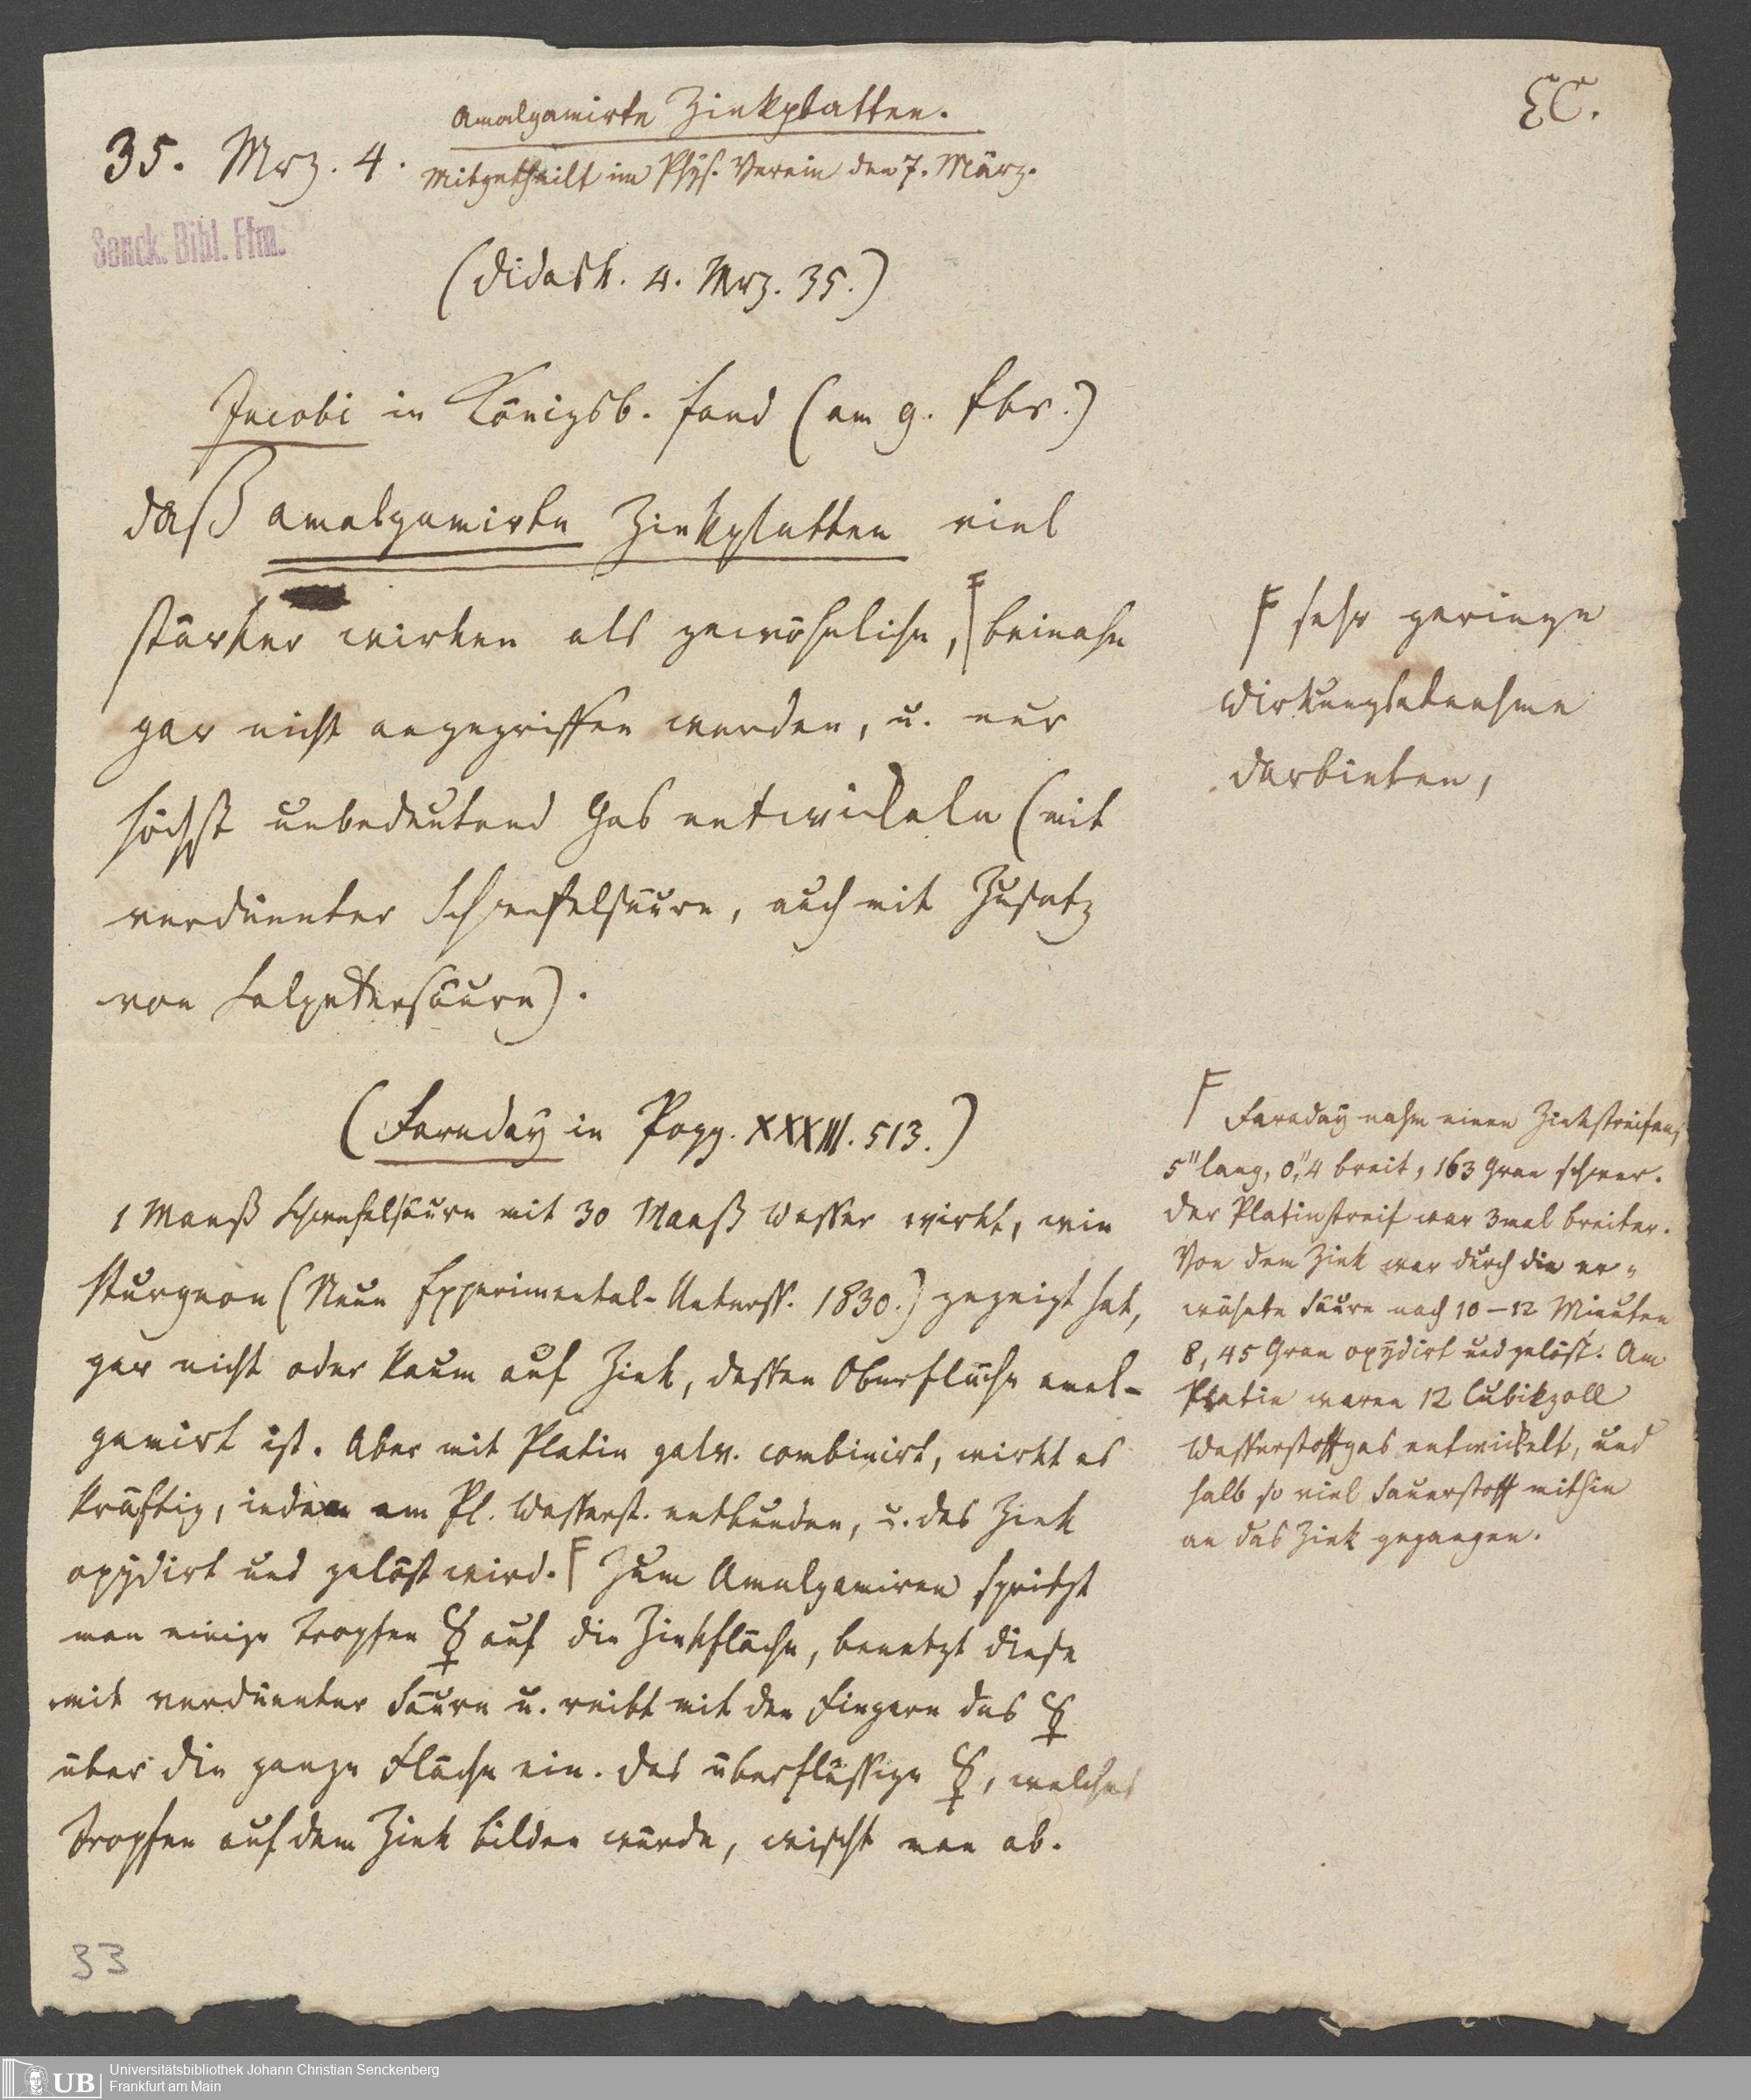 Amalgamirte Zinkplatten.
EC.
35. Mrz. 4.
Mitgetheilt im Phys. Verein den 7. März.
Senck. Bibl. Ffm.
(Didask. 4. Mrz. 35.)
Jacobi in Königsb. fand (am 9. Fbr.)
daß amalgamirte Zinkplatten viel
stärker wirken als gewöhnliche, F beinahe
gar nicht angegriffen werden, u. nur
höchst unbedeutend Gas entwickeln (mit
verdünnter Schwefelsäure, auch mit Zusatz
von Salpetersäure).
F sehr geringe
Wirkungsabnahme
darbieten,
(Faraday in Pogg. XXXIII. 513.)
1 Maaß Schwefelsäure mit 30 Maaß Wasser wirkt, wie
Sturgeon (Neue Experimental-Unterss. 1830.) gezeigt hat,
gar nicht oder kaum auf Zink, dessen Oberfläche amal-
gamirt ist. Aber mit Platin galv. combinirt, wirkt es
kräftig, indem am Pl. Wasserst. entbunden, u. das Zink
oxydirt und gelöst wird. F Zum Amalgamiren spritzt
man einige Tropfen ☿ auf die Zinkfläche, benetzt diese
mit verdünnter Säure u. reibt mit den Fingern das ☿
über die ganze Fläche ein. Das überflüssige ☿, welches
Tropfen auf dem Zink bilden würde, wischt man ab.
F Faraday nahm einen Zinkstreifen,
5" lang, 0",4 breit, 163 Gran schwer.
Der Platinstreif war 3mal breiter.
Von dem Zink war durch die er-
wähnte Säure nach 10–12 Minuten
8,45 Gran oxydirt und gelöst. Am
Platin waren 12 Cubikzoll
Wasserstoffgas entwickelt, und
halb so viel Sauerstoff mithin
an das Zink gegangen.
33
UB
Universitätsbibliothek Johann Christian Senckenberg
Frankfurt am Main